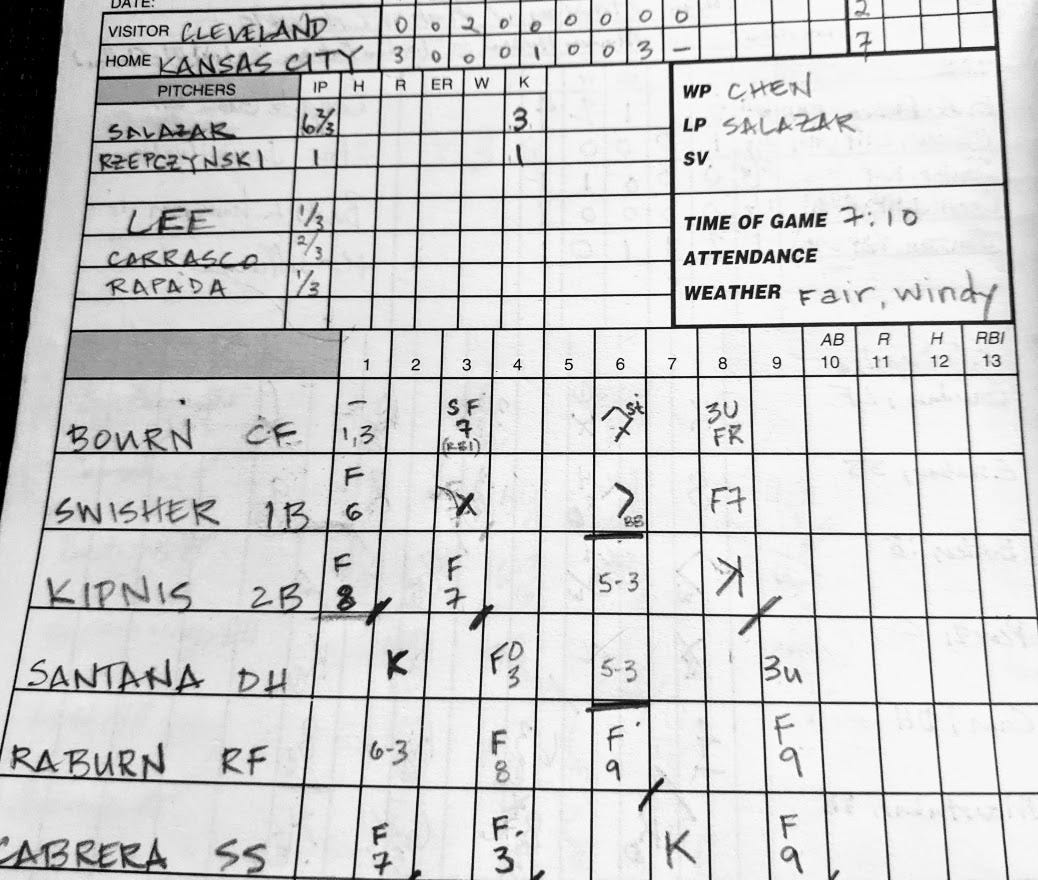 DATE:
VISITOR CLEVELAND 0 0 2 0 0 0 0 0 0 2
HOME KANSAS CITY 3 0 0 0 1 0 0 3 – 7
PITCHERS IP H R ER W K
SALAZAR 6 2/3 3
RZEPCZYNSKI 1 1
LEE 1/3
CARRASCO 2/3
RAPADA 1/3
WP CHEN
LP SALAZAR
SV
TIME OF GAME 7:10
ATTENDANCE
WEATHER Fair, Windy
AB R H RBI
1 2 3 4 5 6 7 8 9 10 11 12 13
BOURN CF – 1,3 SF 7 (RBI) St 7 3U FR
SWISHER 1B F 6 X BB F7
KIPNIS 2B F 8 F 7 5-3 K
SANTANA DH K FO 3 5-3 3U
RABURN RF 6-3 F 8 F 9 F 9
CABRERA SS F 7 F 3 K F 9